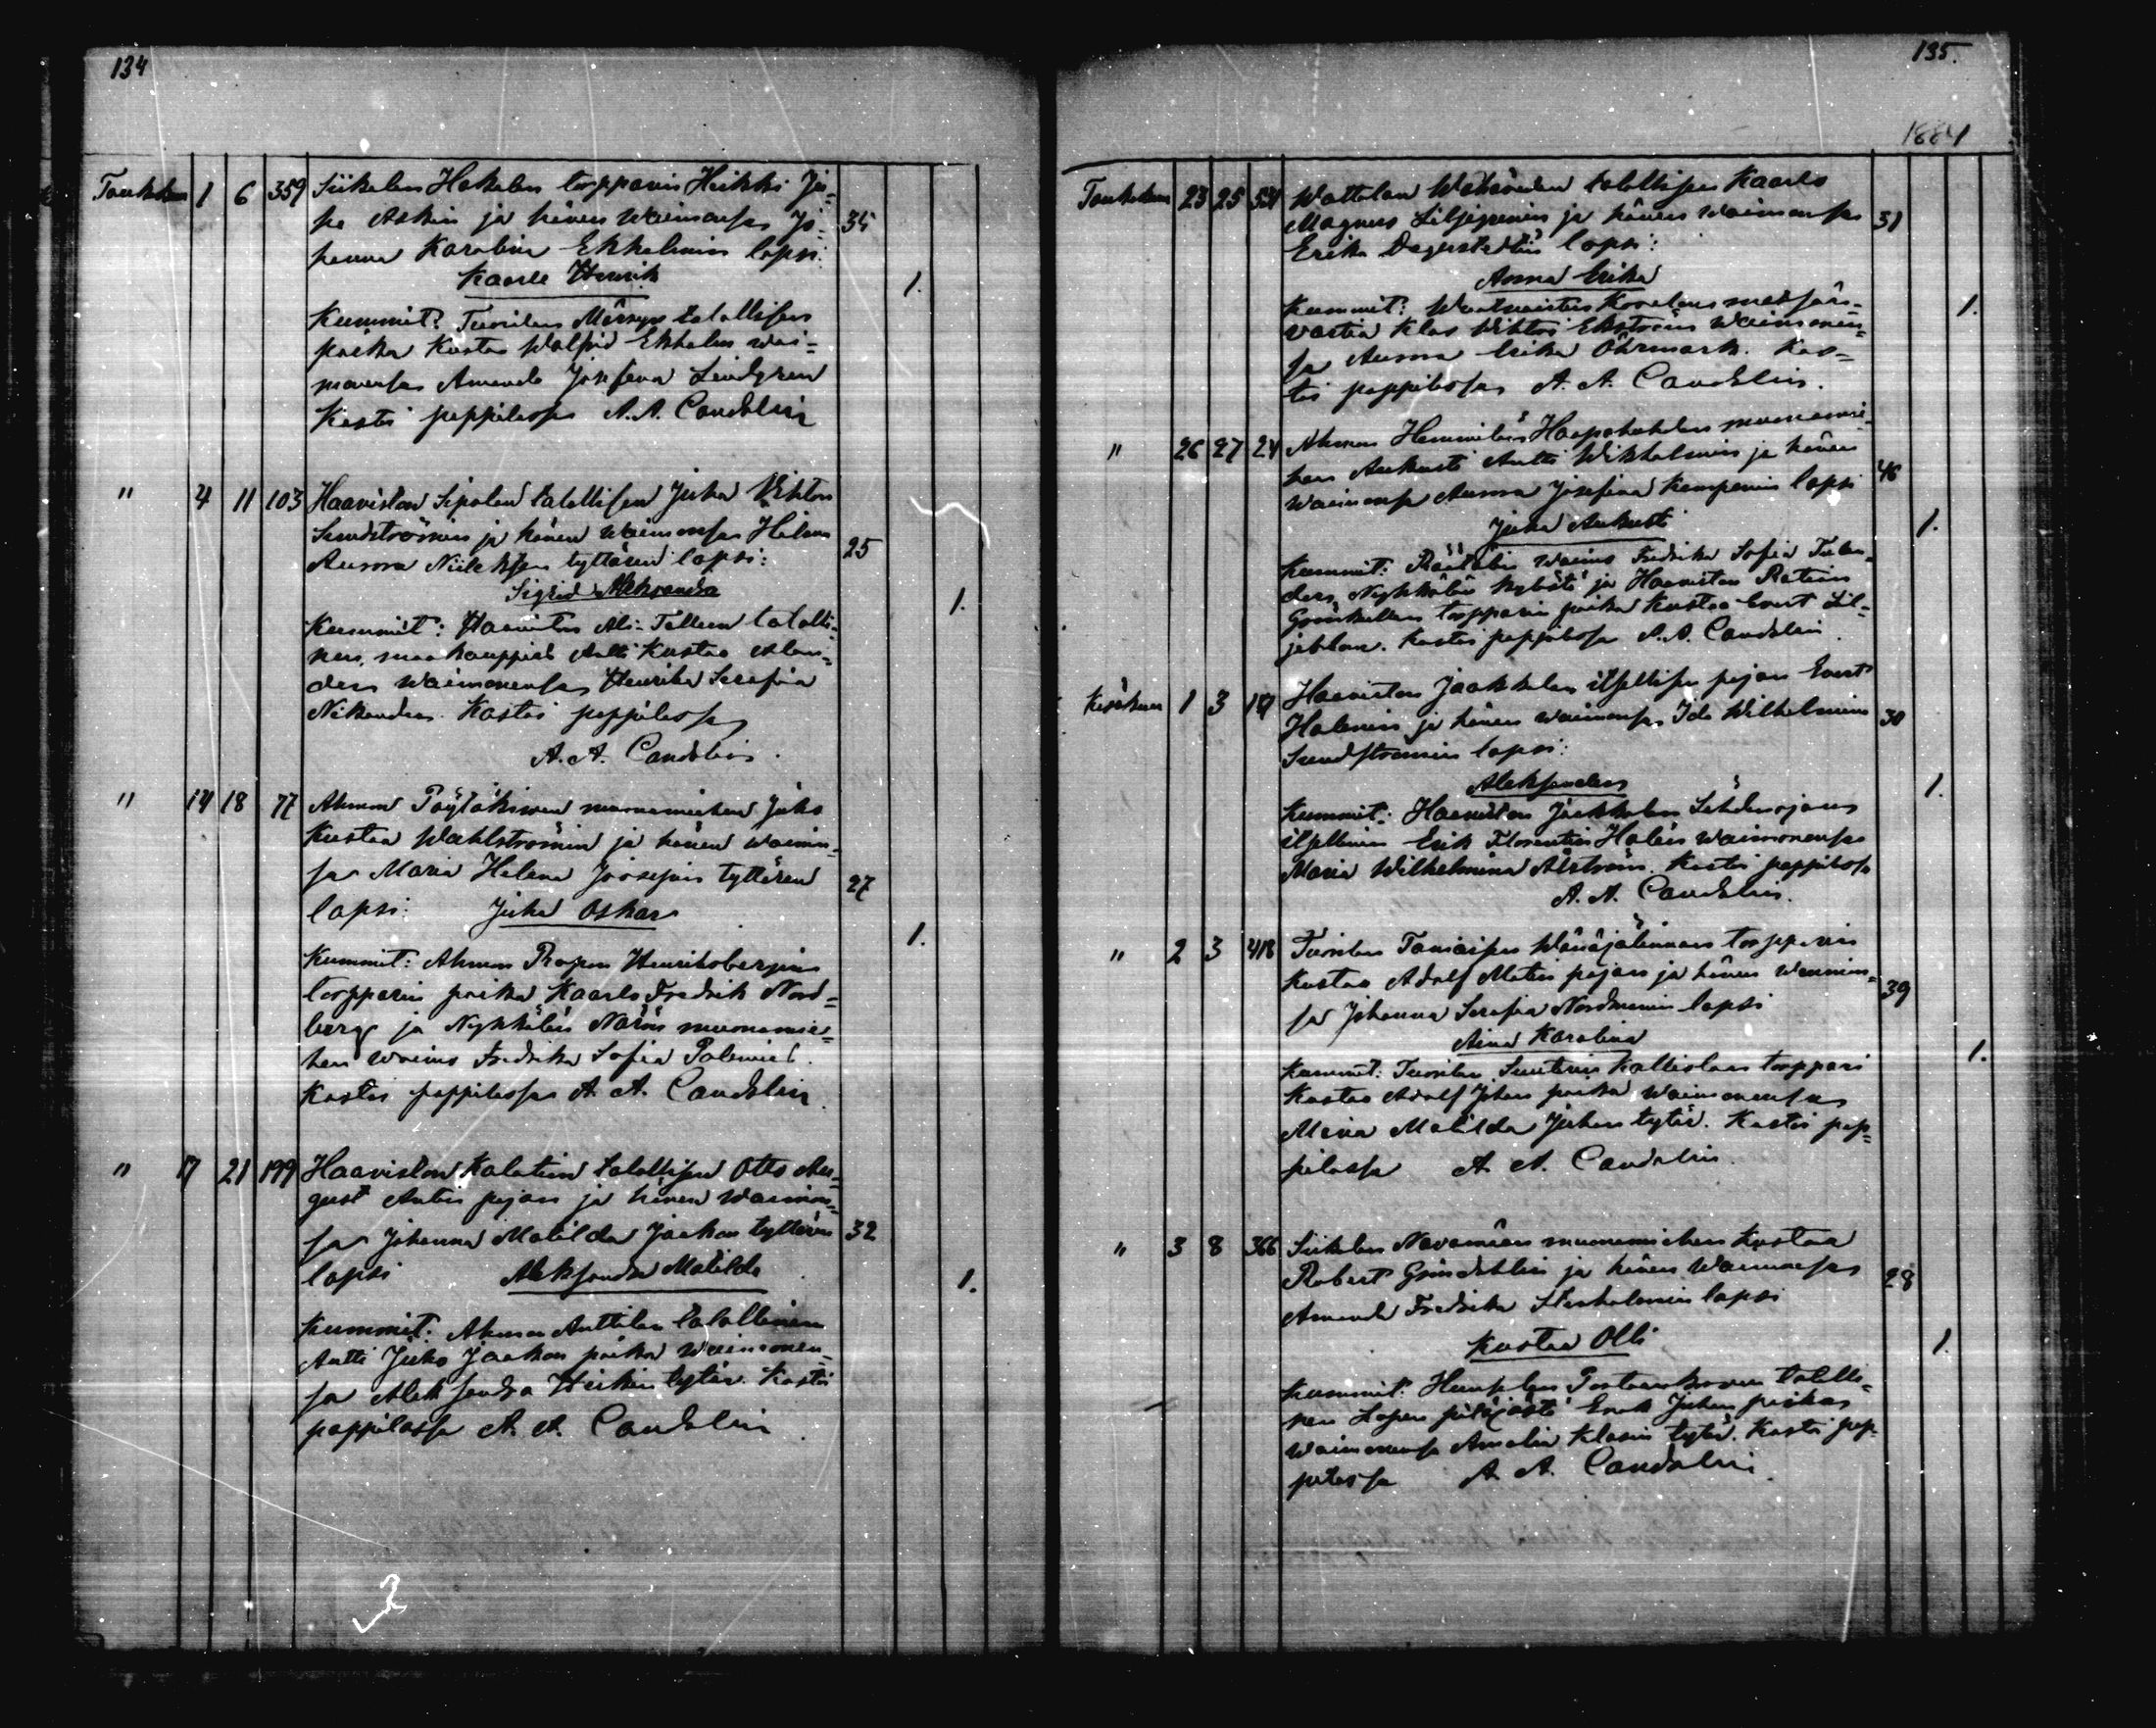 134
Toukokuu 1 6 359 Siikalan Hakalan torpparin Heikki Ju-
ho Askin ja hänen waimonsa Jo- 35
hanna Karolina Ekholmin lapsi:
Kaarle Henrik 1.
Kummit: Tuorilan Märsyn talollisen
poika Kustaa Walfrid Ekholm wai-
monensa Amanda Josefina Lindgren
Kasti pappilassa A. A. Candelin
" 4 11 103 Haaviston Sipolan talollisen Juha Viktor
Sundströmin ja hänen waimonsa Hilma 25
Aurora Niileksen tyttären lapsi:
Sigrid Aleksandra 1.
Kummit: Haaviston Ali- talolli-
nen, maakauppias Antti Kustaa
waimonensa Henrika Serafia
Nikander. Kasti pappilassa
A. A. Candelin.
" 14 18 77 Ahmon muonamiehen Juho
Kustaa Wahlströmin ja hänen waimon-
sa Maria Helena Joosepin tyttären 27
lapsi: Juho Oskar
1.
Kummit: Ahmon Henriksbergin
torpparin poika Kaarlo Fredrik Nord-
berg ja Nykkälän muonamie-
hen waimo Fredrika Sofia
Kasti pappilassa A. A. Candelin.
" 17 21 199 Haaviston Kalatien talollisen Otto Au-
gust Antin pojan ja hänen waimon-
sa Johanna Matilda Jaakon tyttären 32
lapsi Aleksandra Matilda 1.
Kummit: Ahmon Anttilan talollinen
Antti Juho Jaakon poika waimonen-
sa Aleksandra Heikin tytär. Kasti
pappilassa A. A. Candelin.
135.
1884
Toukokuu 23 25 Wattolan talollisen Kaarlo
Magnus Liljegrenin ja hänen waimonsa 31
Erika Dagerstedtin lapsi:
Anna Erika
Kummit: metsän- 1.
vartia Klas Viktor Ekström waimonen-
sa Aurora Erika Öhrmark. Kas-
ti pappilassa A. A. Candelin.
" 26 27 24 Ahmon Hemmilän muonamie-
hen Aukusti Antti Wikholmin ja hänen
waimonsa Aurora Josefina lapsi 46
Juho Aukusti 1.
Kummit: Räätälin waimo Fredrika Sofia
Nykkälän kylästä ja Haaviston
torpparin poika Kustaa Evert Lil-
jeblom. Kasti pappilassa A. A. Candelin.
Kesäkuu 1 3 Haaviston Jaakkolan itsellisen pojan Evert
Halenin ja hänen waimonsa Ida Wilhelmina 30
Sundströmin lapsi:
Aleksander 1.
Kummit: Haaviston Jaakkolan
itsellinen Erik Florentin Halén waimonensa
Maria Wilhelmina Åström. Kasti pappilassa
A. A. Candelin.
" 2 3 418 Tuorilan torpparin
Kustaa Adolf Matin pojan ja hänen waimon- 39
sa Johanna Serafia Nordmanin lapsi
Aina Karolina 1.
Kummit: Tuorilan Kalliolan torppari
Kustaa Adolf Juhan poika waimonensa
Maria Matilda Juhan tytär. Kasti pap-
pilassa A. A. Candelin.
" 3 8 366 Siikalan muonamiehen Kustaa
Robert ja hänen waimonsa 28
Amanda Fredrika lapsi
Kustaa Olli 1.
Kummit: talolli-
nen Lopen pitäjästä Erik Juhan poika
waimonensa Amalia Klasin tytär. Kasti pap-
pilassa A. A. Candelin.